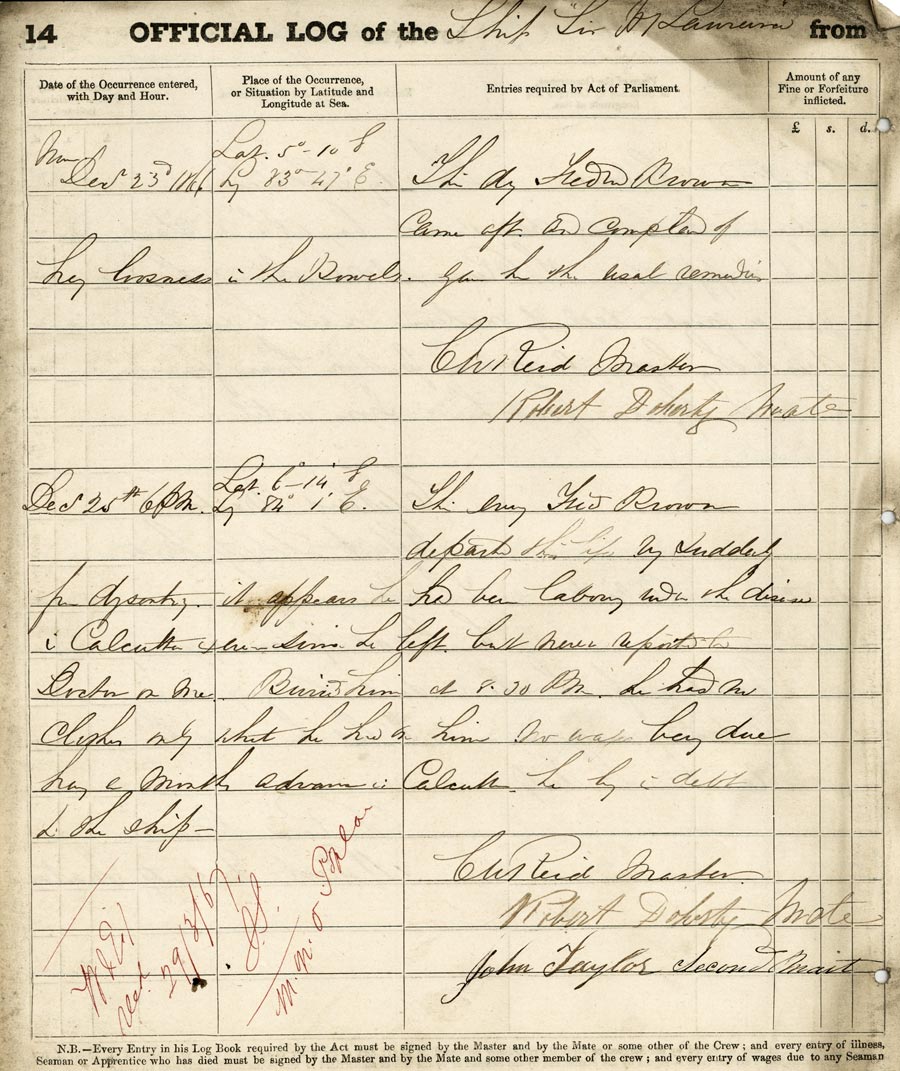 14 OFFICIAL LOG of the Ship "Sir H Lawrence" from
Date of the Occurrence entered,
with Day and Hour.
Place of the Occurrence,
or Situation by Latitude and
Longitude at Sea.
Entries required by Act of Parliament.
Amount of any
Fine or Forfeiture
inflicted.
£ s. d.
Lat. 5°-10
Decr 23rd 1866 83°-47' E.
This day Fredk Brown
came aft. and complained of
looseness in the Bowels. gave him the usual remedies
Reid Master
Robert Doherty Mate
Lat. 6°-14'
Decr 25th 6 P.M. 84° 1' E.
This eveg Fred Brown
departed this life very suddenly
from dysentry. it appears he had been labourg under the disease
in Calcutta & ever since he left. but never reported to
Doctor or me. Buried him at 8.30 P.M. he had no
Clothes only what he had on him no wages being due
havg a months advance in Calcutta. he beg in debt
to the ship
Reid Master
Robert Doherty Mate
John Taylor Second Mait
29/3/67
N.B.—Every Entry in his Log Book required by the Act must be signed by the Master and by the Mate or some other of the Crew; and every entry of illness,
Seaman or Apprentice who has died must be signed by the Master and by the Mate and some other member of the crew; and every entry of wages due to any Seaman